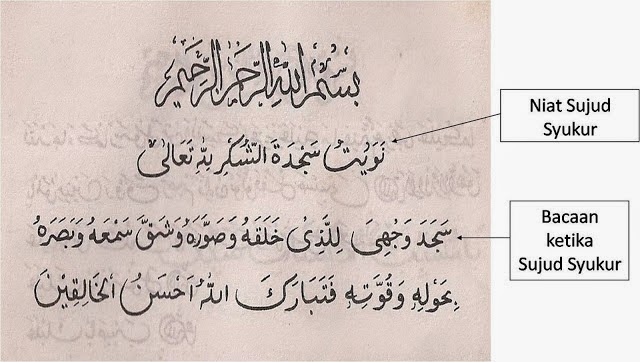 بِسْمِ اللهِ الرَّحْمٰنِ الرَّحِيْمِ
نَوَيْتُ سَجْدَةَ الشُّكْرِ لِلّٰهِ تَعَالَى
Niat Sujud
Syukur
سَجَدَ وَجْهِىَ لِلَّذِىْ خَلَقَهُ وَصَوَّرَهُ وَشَقَّ سَمْعَهُ وَبَصَرَهُ
Bacaan
ketika
Sujud Syukur
بِحَوْلِهِ وَقُوَّتِهِ فَتَبَارَكَ اللهُ اَحْسَنُ الْخَالِقِيْنَ